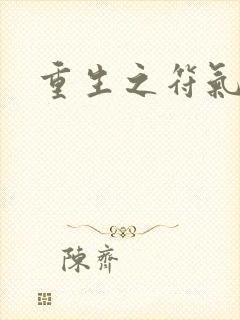 重生之符氣
陳齊